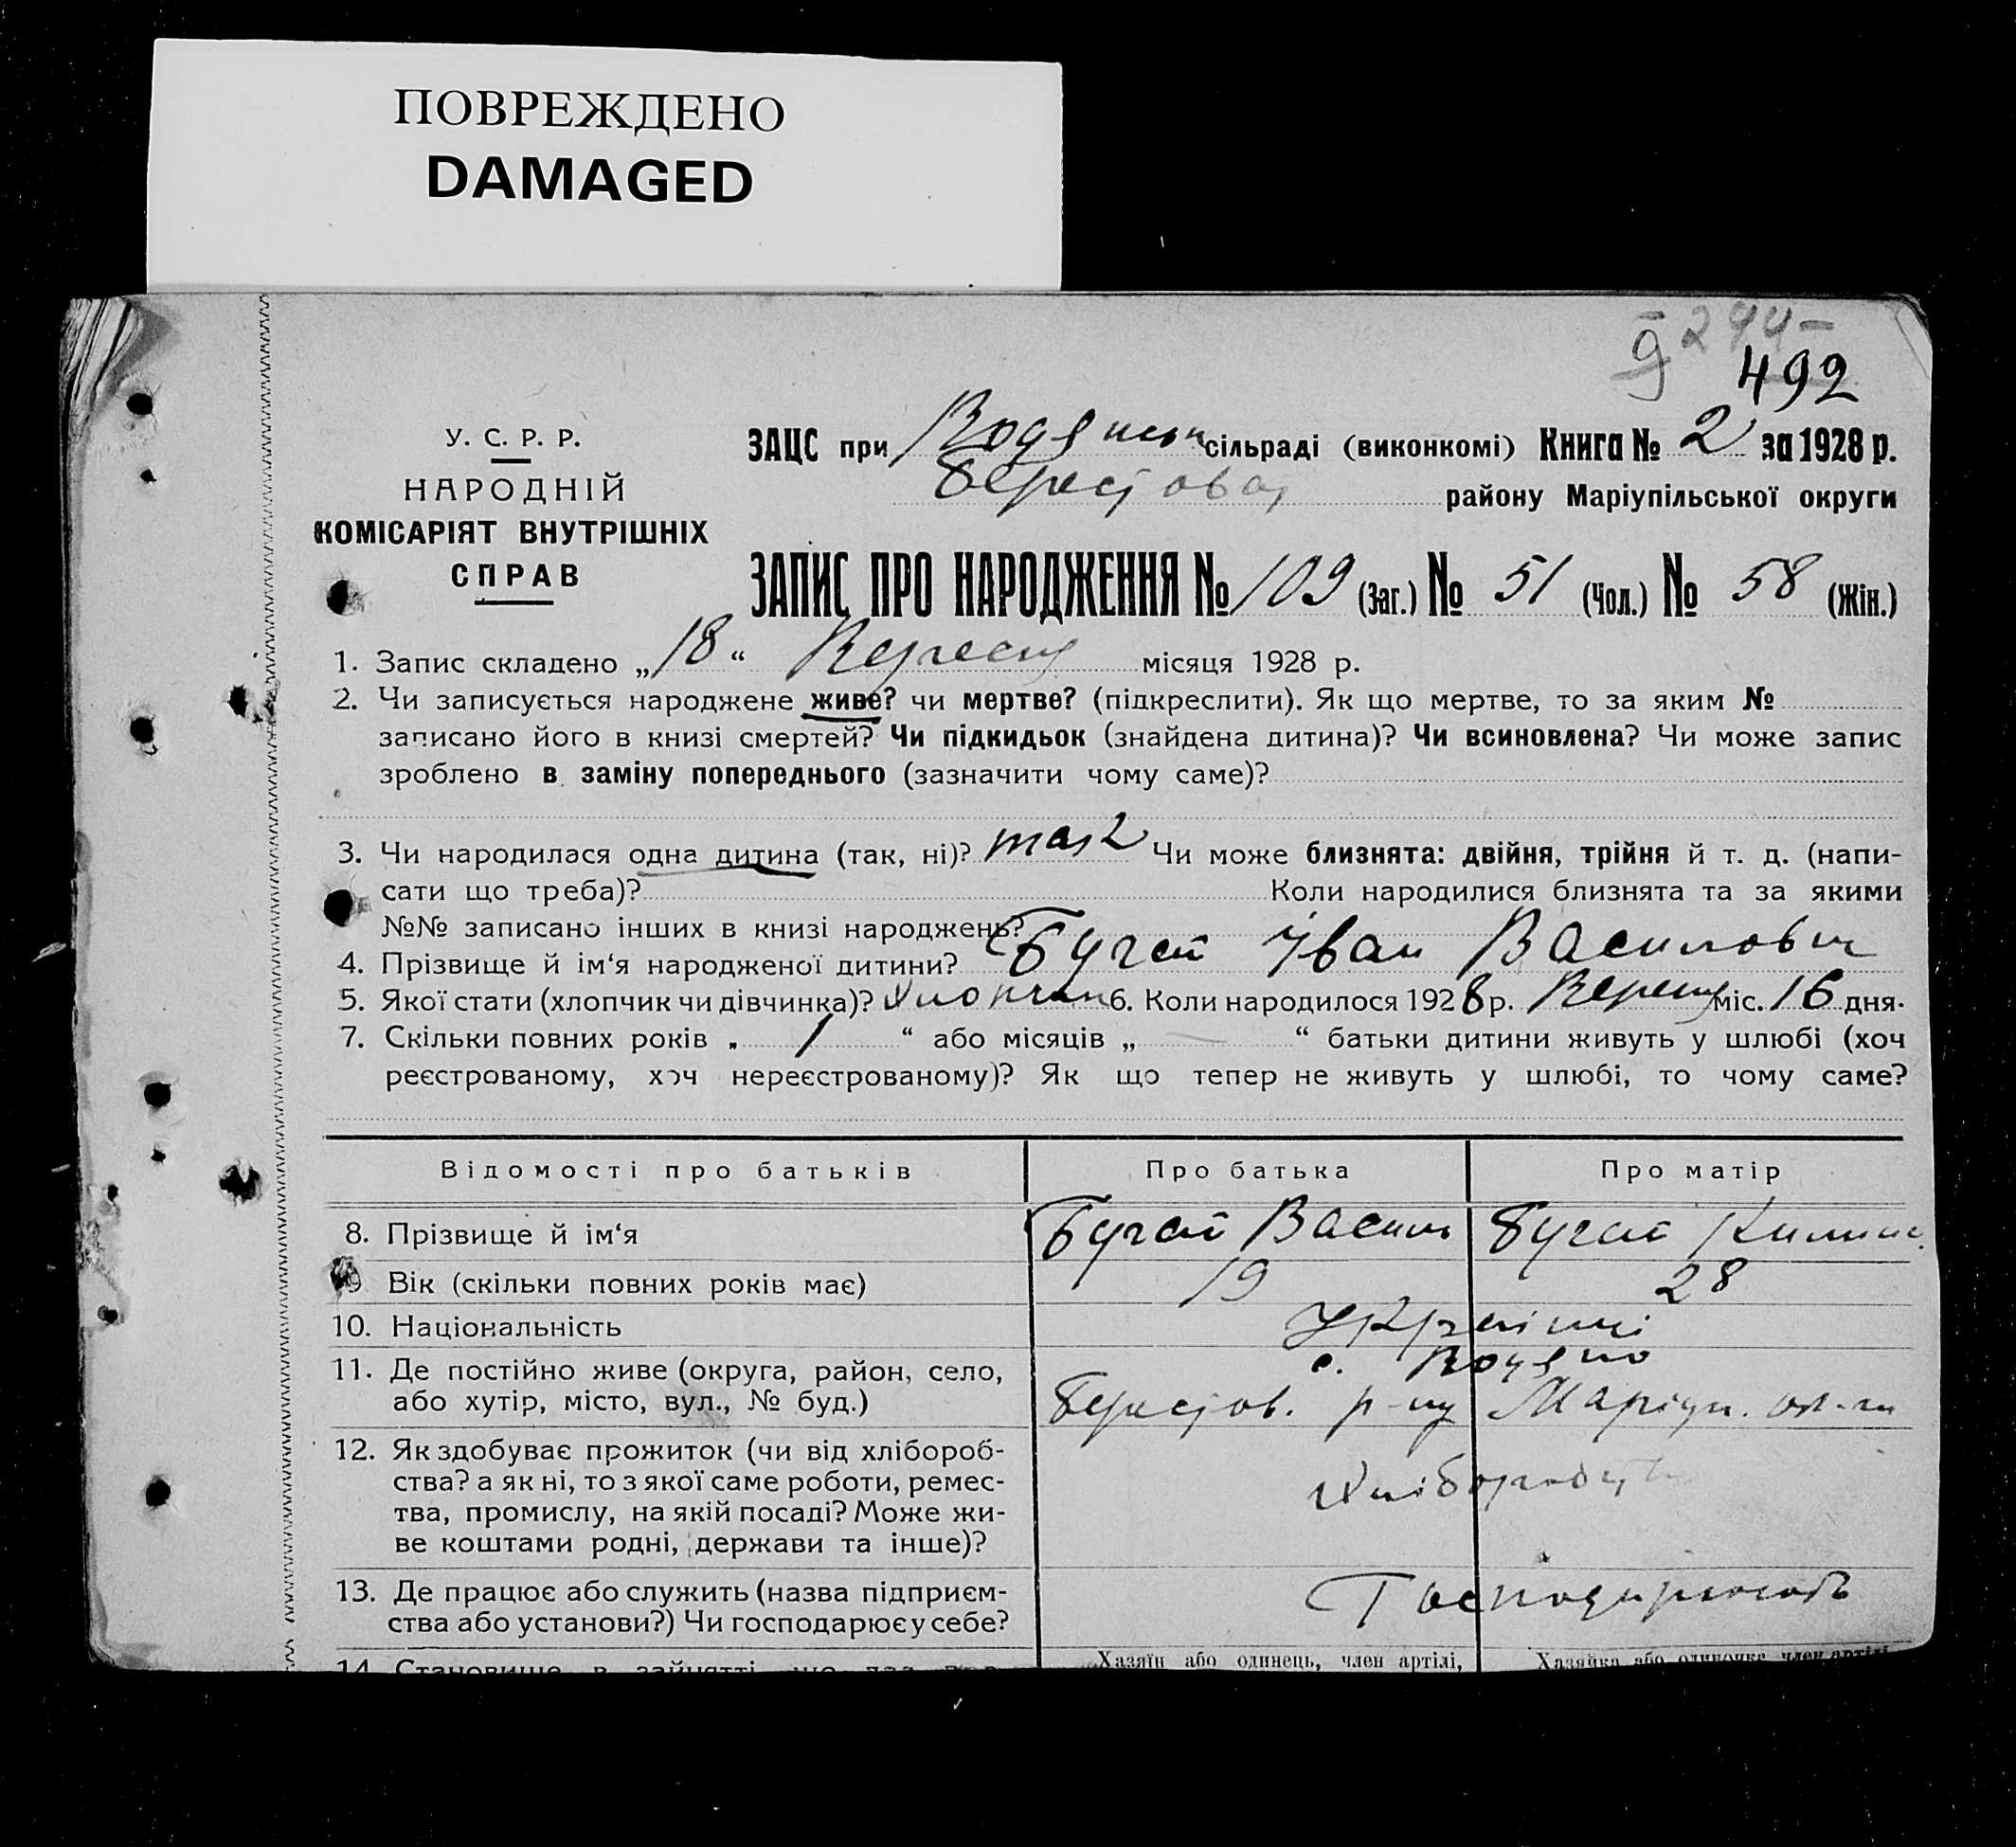 ПОВРЕЖДЕНО
DAMAGED
244
9
492
У. С. Р. Р.
НАРОДНІЙ
КОМІСАРІЯТ ВНУТРІШНІХ
СПРАВ
ЗАЦС при сільраді (виконкомі) Книга № 2 за 1928 р.
району Маріупільської округи
ЗАПИС ПРО НАРОДЖЕННЯ № 109 (Заг.) № 51 (Чол.) № 58 (Жін.)
1. Запис складено „ 18 “ Вересня місяця 1928 р.
2. Чи записується народжене живе? чи мертве? (підкреслити). Як що мертве, то за яким №
записано його в книзі смертей? Чи підкидьок (знайдена дитина)? Чи всиновлена? Чи може запис
зроблено в заміну попереднього (зазначити чому саме)?
3. Чи народилася одна дитина (так, ні)? так Чи може близнята: двійня, трійня й т. д. (напи-
сати що треба)? Коли народилися близнята та за якими
№№ записано інших в книзі народжень?
4. Прізвище й ім‘я народженої дитини? Бугай Іван Васильович
5. Якої стати (хлопчик чи дівчинка)? Хлопчик 6. Коли народилося 1928 р. Вересня міс. 16 дня.
7. Скільки повних років „ 1 “ або місяців „ — “ батьки дитини живуть у шлюбі (хоч
реєстрованому, хоч нереєстрованому)? Як що тепер не живуть у шлюбі, то чому саме?
Відомості про батьків Про батька Про матір
8. Прізвище й ім‘я Бугай Василь Бугай
9 Вік (скільки повних років має) 19 28
10. Національність Українці
11. Де постійно живе (округа, район, село, с. Водяно
або хутір, місто, вул., № буд.) Берестов. р-ну Маріуп. ок-ги
12. Як здобуває прожиток (чи від хлібороб- Хлібороби
ства? а як ні, то з якої саме роботи, ремес-
тва, промислу, на якій посаді? Може жи-
ве коштами родні, держави та інше)?
13. Де працює або служить (назва підприєм- Господарюють
ства або установи?) Чи господарює у себе?
14. Становище в занятті, що
Хазяїн або одинець, член артілі, Хазяйка або одиночка член артілі